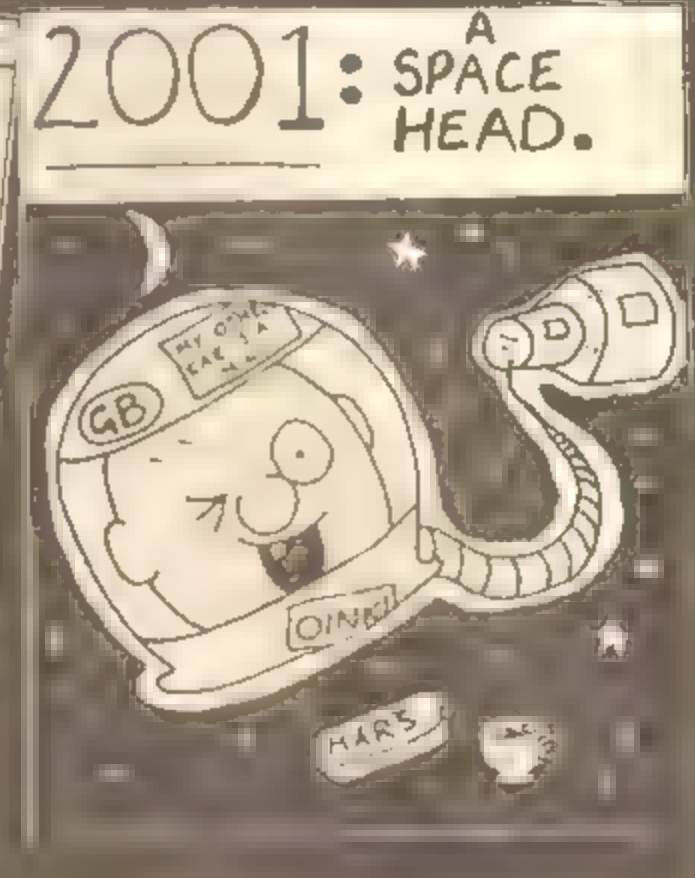 2001:
A
SPACE
HEAD.
GB
MY OTHER
CAR IS A
OINK!
MARS